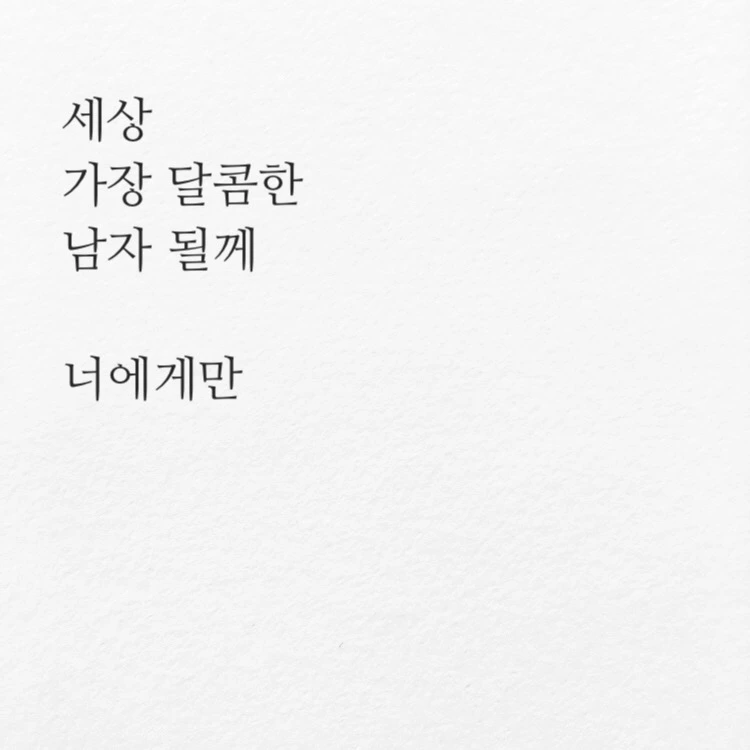 세상
가장 달콤한
남자 될께
너에게만